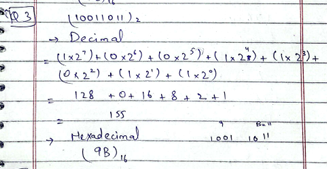 Q.3
(10011011)₂
→ Decimal
= (1x2⁷)+(0x2⁶)+(0x2⁵)+(1x2⁴)+(1x2³)+
(0x2²)+(1x2¹)+(1x2⁰)
= 128 + 0 + 16 + 8 + 2 + 1
= 155
→ Hexadecimal
(9B)₁₆
9
1001 1011